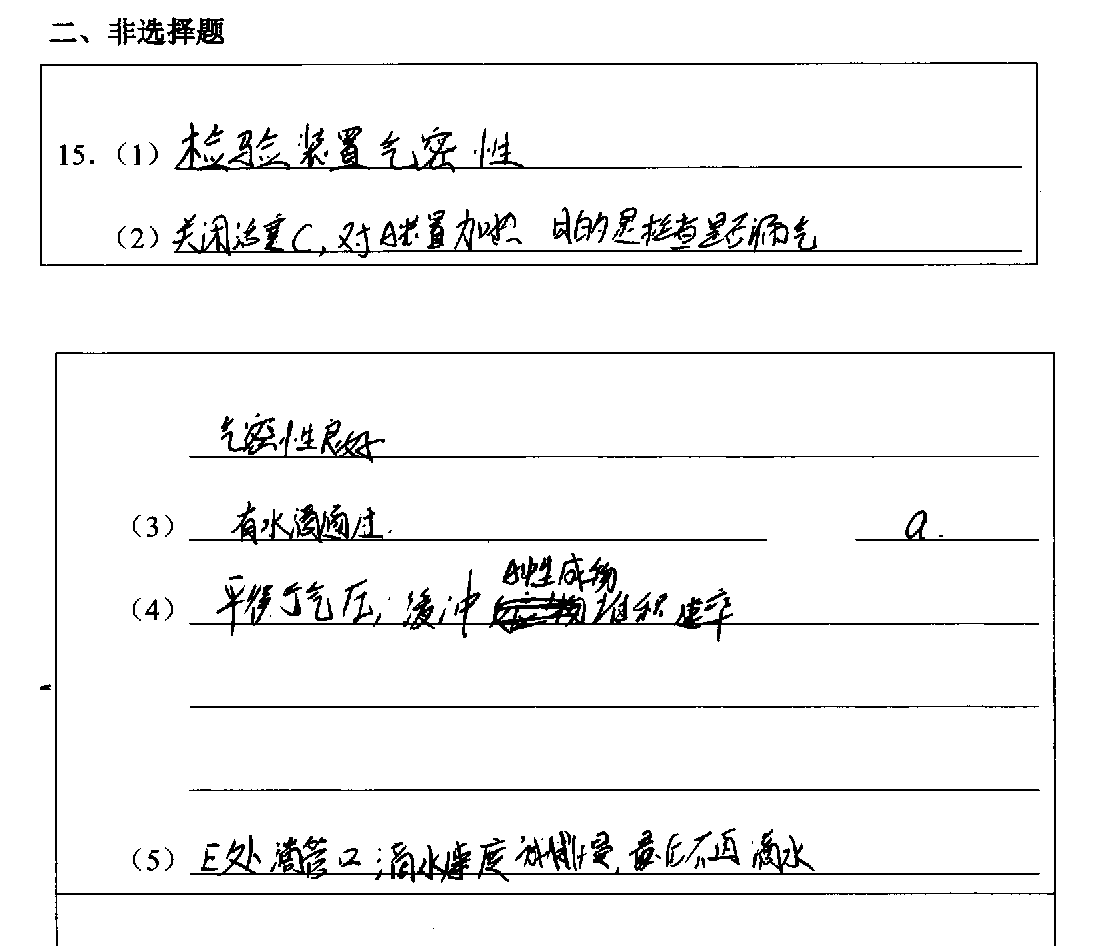 二、非选择题
15.（1）检验装置气密性
（2）关闭活塞C，对A装置加热 目的是检查是否漏气
气密性良好
（3）有水滴通过. a.
（4）平衡了气压；缓冲 生成物 堆积速率
（5）E处滴管口滴水速度 慢，最后不再滴水